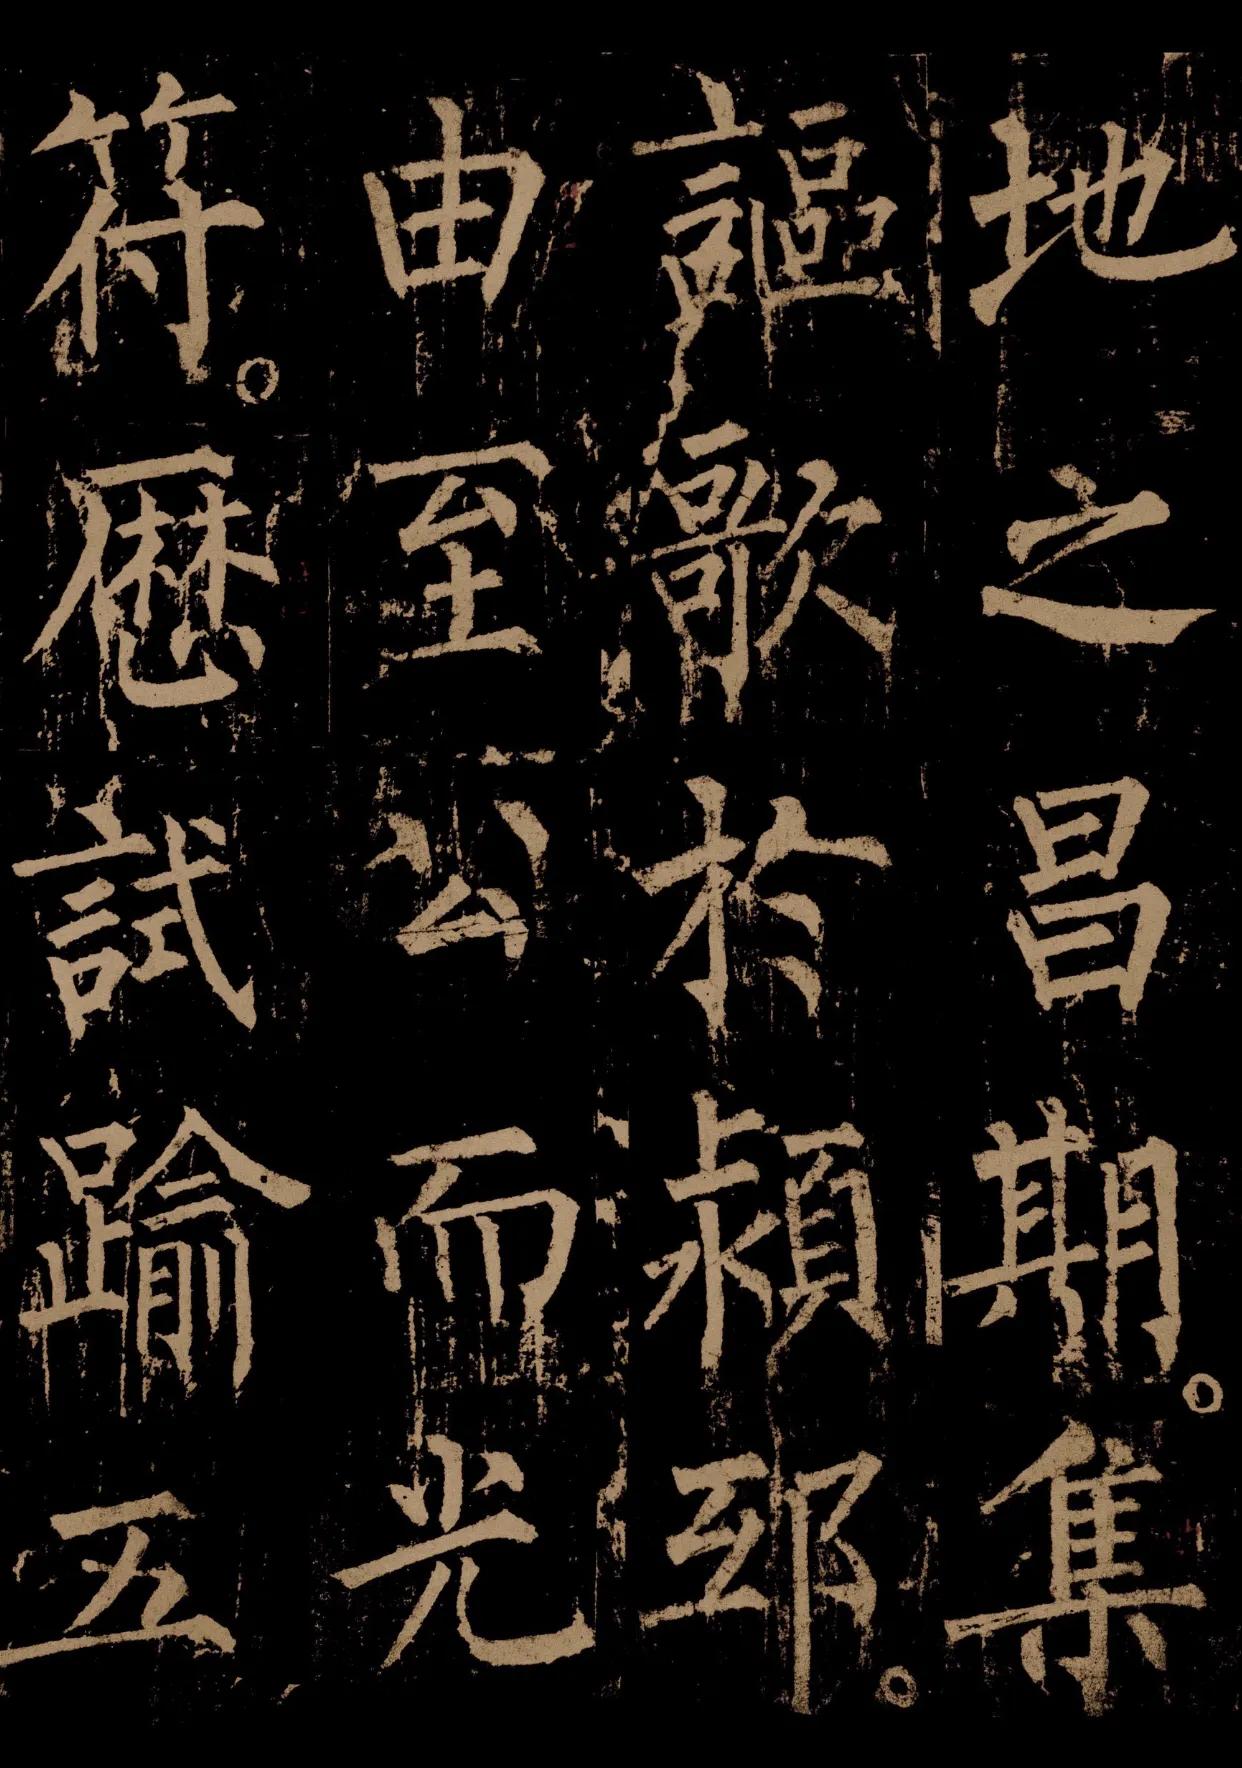 地之昌期。集
謳歌於潁邸。
由至公而光
符。歷試踰五